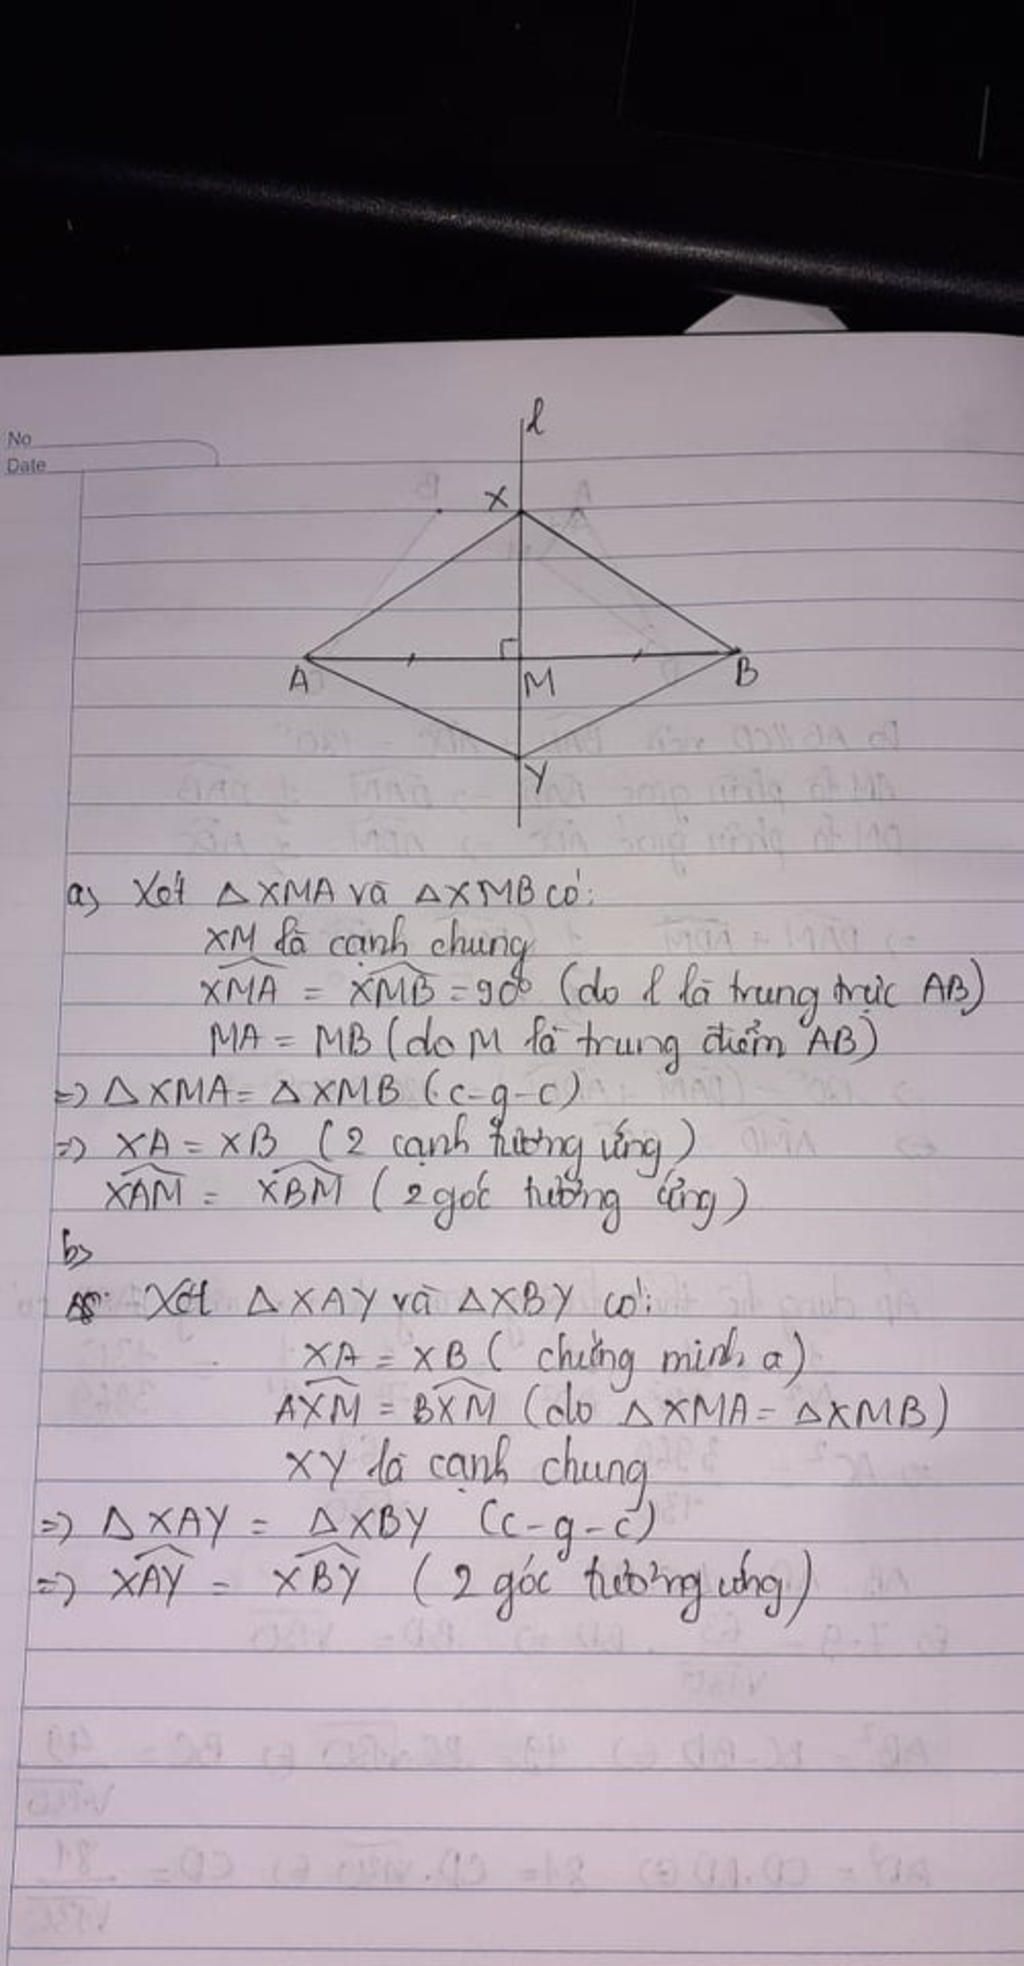 No
Date
l
X
A
M
B
Y
a) Xét △XMA và △XMB có:
XM là cạnh chung
XMA = XMB = 90° (do l là trung trực AB)
MA = MB (do M là trung điểm AB)
=> △XMA = △XMB (c-g-c)
=> XA = XB (2 cạnh tương ứng)
XAM = XBM (2 góc tương ứng)
b)
Xét △XAY và △XBY có:
XA = XB (chứng minh a)
AXM = BXM (do △XMA = △XMB)
XY là cạnh chung
=> △XAY = △XBY (c-g-c)
=> XAY = XBY (2 góc tương ứng)